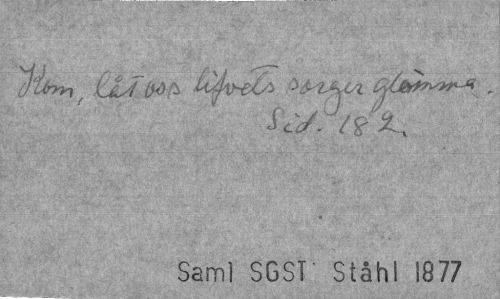 Kom, låt oss lifvets sorger glömma.
Sid. 182.
Saml SGST Ståhl 1877